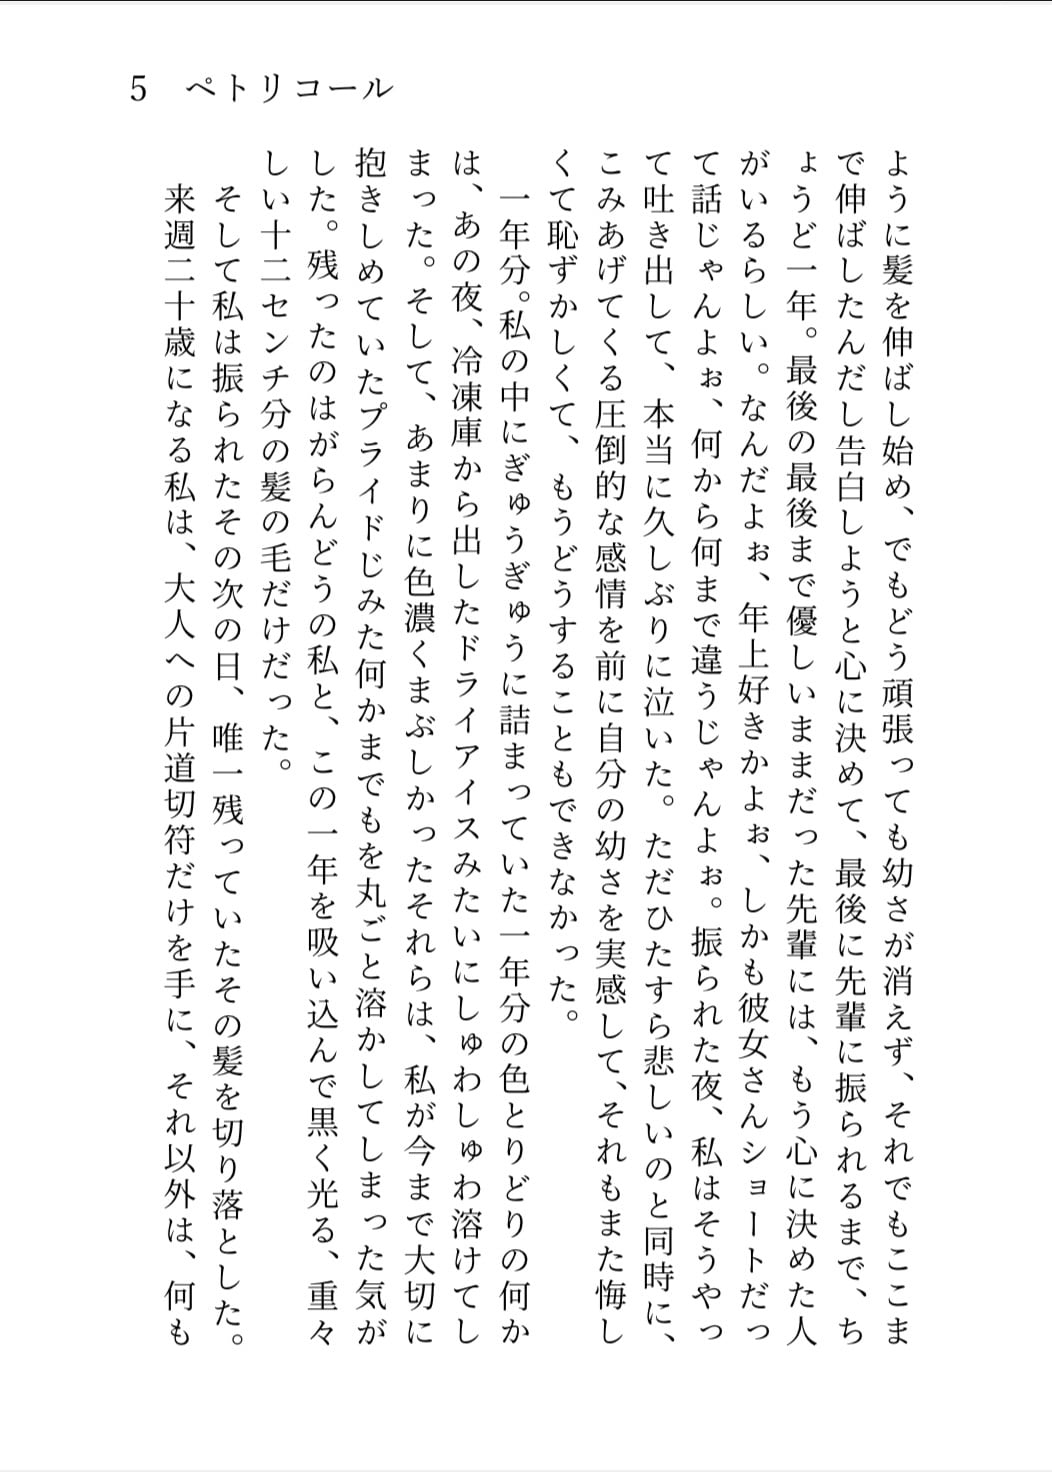 5 ペトリコール
ように髪を伸ばし始め、でもどう頑張っても幼さが消えず、それでもここま
で伸ばしたんだし告白しようと心に決めて、最後に先輩に振られるまで、ち
ょうど一年。最後の最後まで優しいままだった先輩には、もう心に決めた人
がいるらしい。なんだよぉ、年上好きかよぉ、しかも彼女さんショートだっ
て話じゃんよぉ、何から何まで違うじゃんよぉ。振られた夜、私はそうやっ
て吐き出して、本当に久しぶりに泣いた。ただひたすら悲しいのと同時に、
こみあげてくる圧倒的な感情を前に自分の幼さを実感して、それもまた悔し
くて恥ずかしくて、もうどうすることもできなかった。
一年分。私の中にぎゅうぎゅうに詰まっていた一年分の色とりどりの何か
は、あの夜、冷凍庫から出したドライアイスみたいにしゅわしゅわ溶けてし
まった。そして、あまりに色濃くまぶしかったそれらは、私が今まで大切に
抱きしめていたプライドじみた何かまでもを丸ごと溶かしてしまった気が
した。残ったのはがらんどうの私と、この一年を吸い込んで黒く光る、重々
しい十二センチ分の髪の毛だけだった。
そして私は振られたその次の日、唯一残っていたその髪を切り落とした。
来週二十歳になる私は、大人への片道切符だけを手に、それ以外は、何も